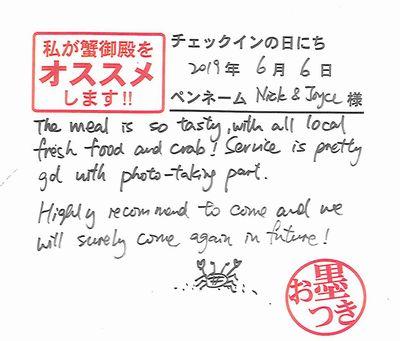 私が蟹御殿を
オススメ
します!!
チェックインの日にち
2019年 6月 6日
ペンネーム Nick & Joyce 様
The meal is so tasty, with all local
fresh food and crab! Service is pretty
gd with photo-taking part.
Highly recommend to come and we
will surely come again in future!
お墨つき